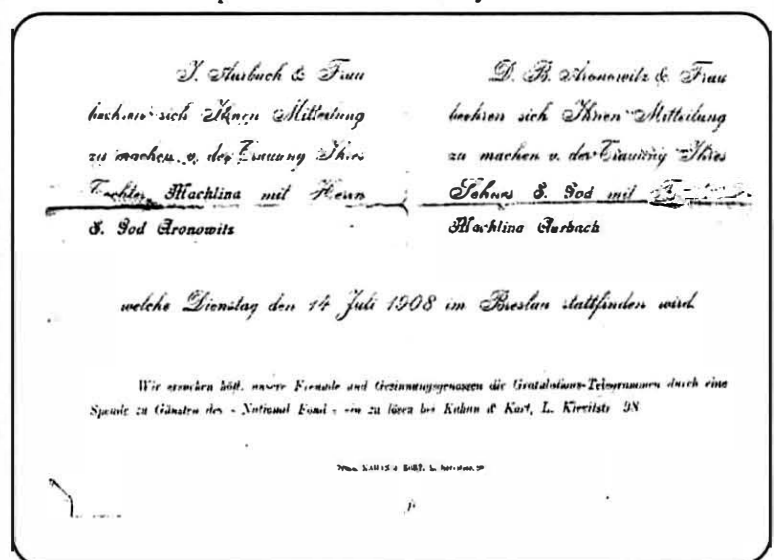 J. Aurbach & Frau
beehren sich Ihnen Mitteilung
zu machen v. der Trauung Ihres
Tochter Machlina mit Herrn
S. God Aronowitz
D. B. Aronowitz & Frau
beehren sich Ihnen Mitteilung
zu machen v. der Trauung Ihres
Sohnes S. God mit
Machlina Aurbach
welche Dienstag den 14 Juli 1908 im Breslau stattfinden wird.
Wir ersuchen höfl. unsere Freunde und Gesinnungsgenossen die Gratulations-Telegrammen durch eine
Spende zu Günsten des « National Fond » ein zu lösen bei Kahan & Kart, L. 98